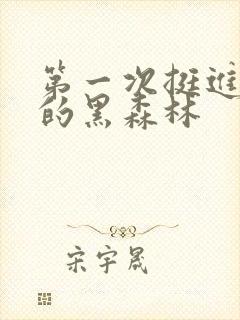 第一次挺进
的黑森林
宋宇晟